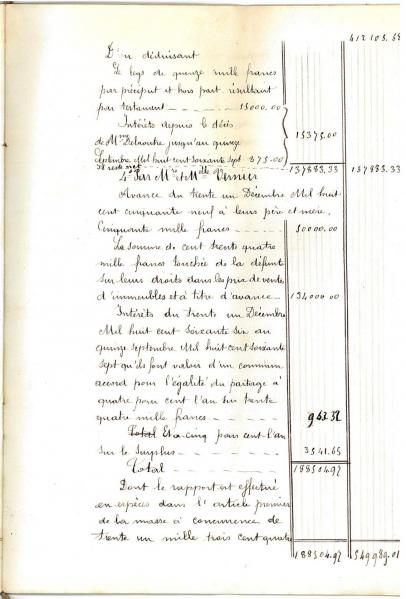 412105.68
D'en déduisant
Le legs de quinze mille francs
par préciput et hors part résultant
par testament _ _ _ _ 15000.00
Intérêts depuis le décès
15375.00
de Mme Delaoutre jusqu'au quinze
Septembre Mil huit cent soixante sept 375.00
Il reste net 137883.33 137883.33
4° Par Mr et Melle Vernier
Avance du trente un Décembre Mil huit
cent cinquante neuf à leurs père et mère.
Cinquante mille francs _ _ _ _ 50000.00
La somme de cent trente quatre
mille francs touchée de la défunte
sur leurs droits dans les prix de vente
d'immeubles et à titre d'avance _ 134000.00
Intérêts du trente un Décembre
Mil huit cent soixante six au
quinze septembre Mil huit cent soixante
sept qu'ils font valoir d'un commun
accord pour l'égalité du partage à
quatre pour cent l'an sur trente
quatre mille francs _ _ _ _ 963.32
Total Et à cinq pour cent l'an
sur le surplus _ _ _ _ 3541.65
Total _ _ _ _ 188504.97
Dont le rapport est effectué
en espèces dans l'article premier
de la masse à concurence de
trente un mille trois cent quatre
188504.97 549989.01